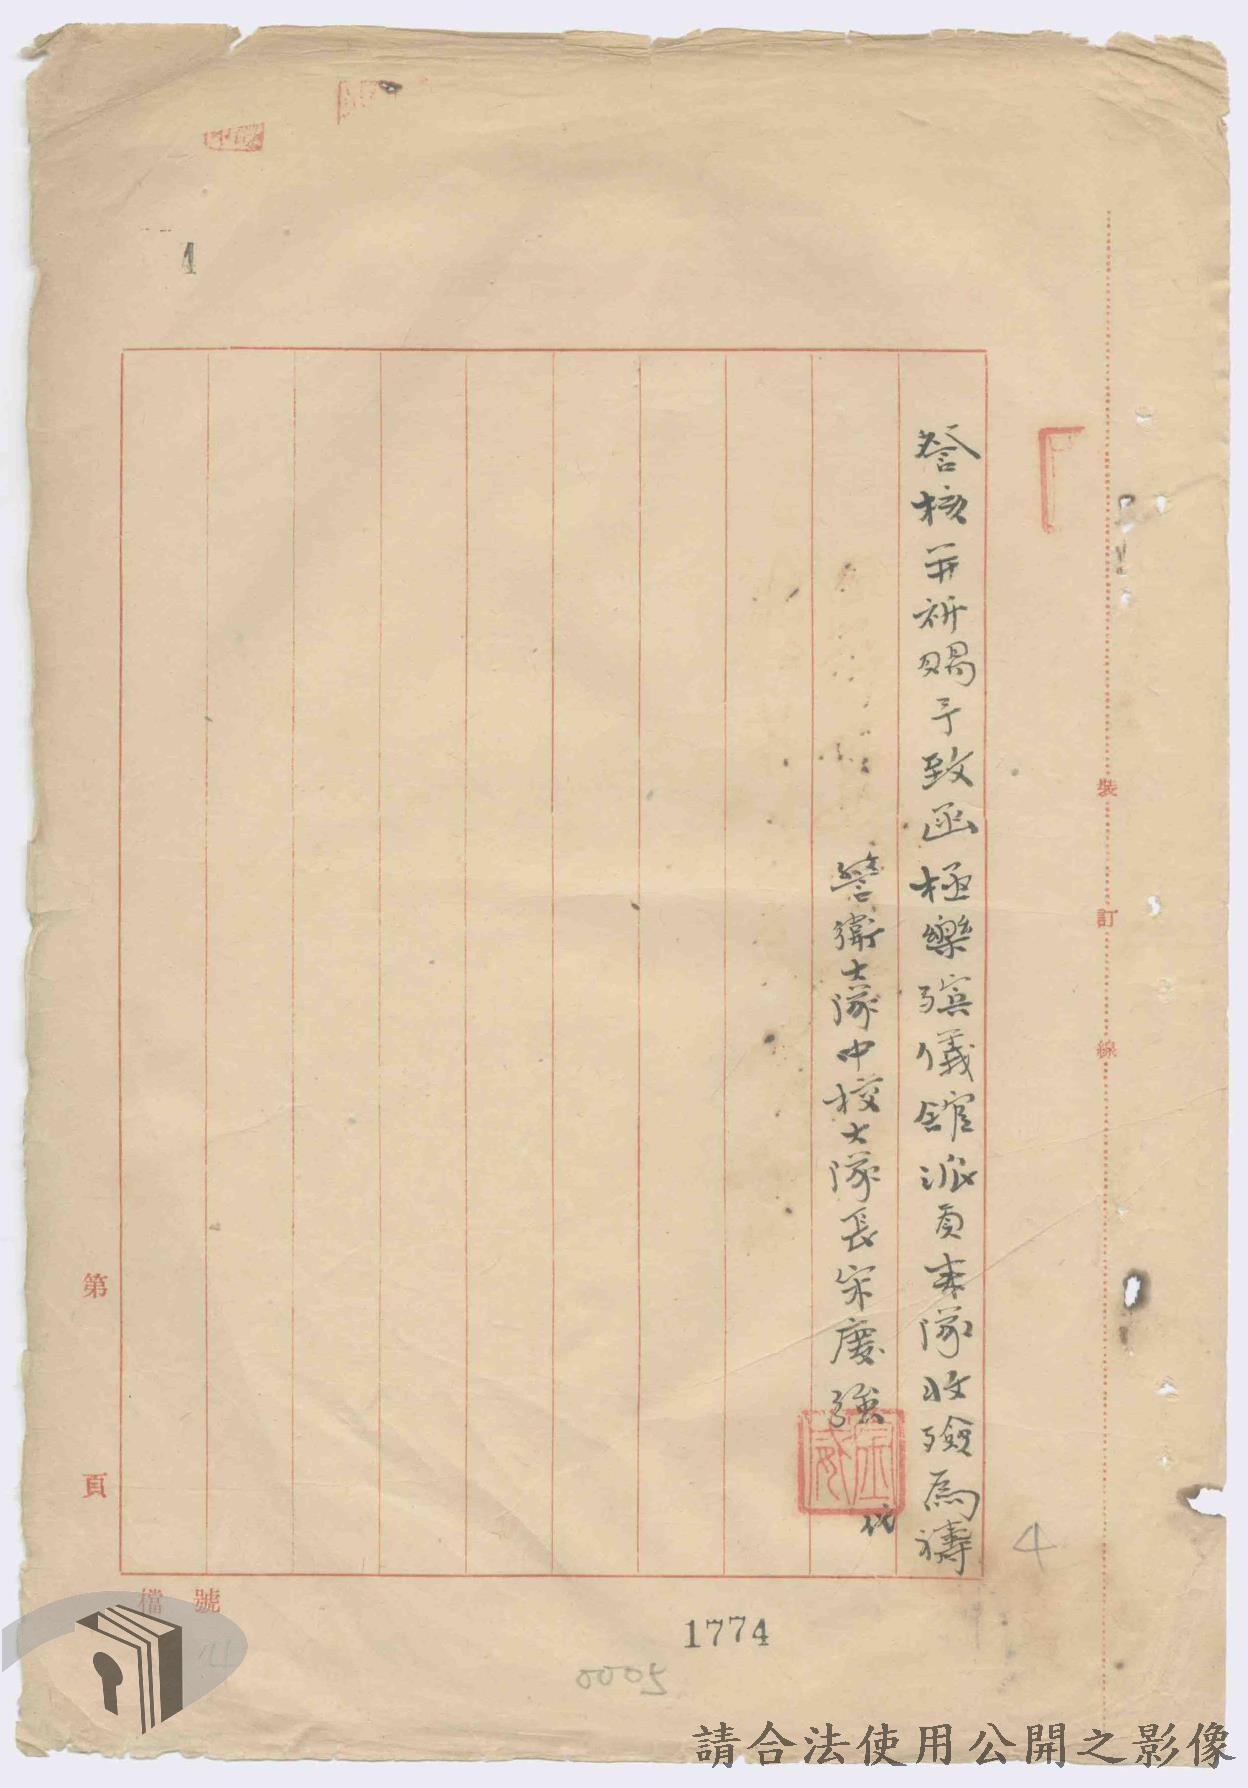 詧核並祈賜予致函極樂殯儀館派員來隊收殮為禱
警衛大隊中校大隊長宋慶強
代
裝
訂
線
第
頁
檔 號
4
4
1774
0005
請合法使用公開之影像